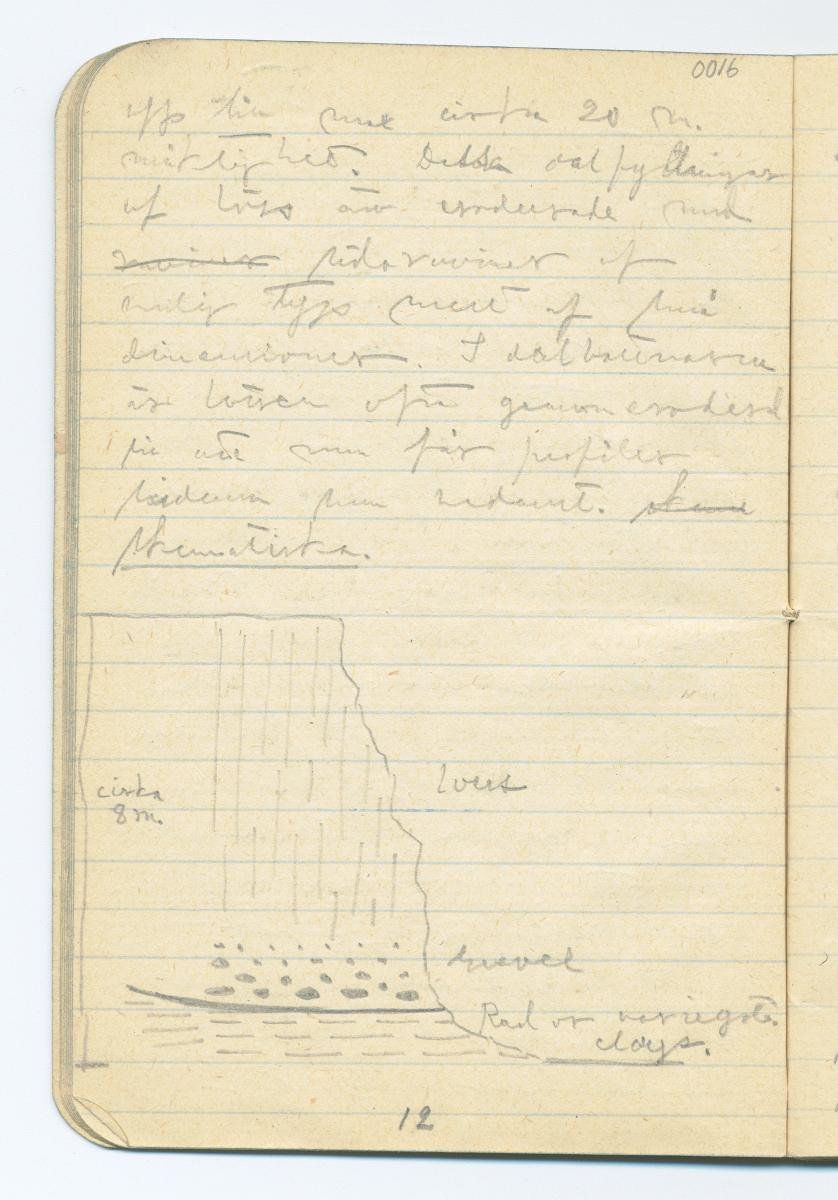 0016
upp till max cirka 20 m.
mäktighet. Dessa dalfyllningar
af löss äro eroderade med
raviner sidoraviner af
vanlig typ mest af små
dimensioner. I dalbottnarna
är lössen ofta genomeroderad
så att man får profiler
sådana som nedanst. skem
Skematiska.
cirka
8 m.
loess
Gravel
Red or variegate.
clays.
12